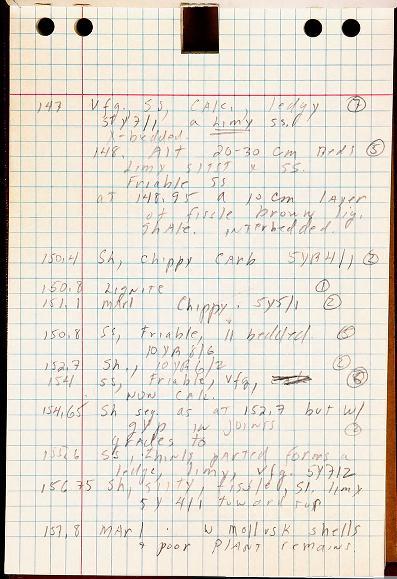 147 Vfg. SS, CALC., ledgy ⑦
5Y7/1, a Limy SS.
X-bedded.
148. Alt 20-30 cm Beds ⑤
Limy siltst & SS.
Friable SS
at 148.95 a 10 cm layer
of fissle brown lig.
shale. interbedded.
150.4 Sh, chippy carb 5YR4/1 ②
150.8 Lignite ①
151.1 marl Chippy. 5Y5/1 ②
150.8 SS, Friable, 11 bedded
10YR 8/6
152.7 Sh., 10YR 6/2
154 SS, Friable, Vfg,
NON calc.
154.65 Sh seq. as at 152.7 but w/
gyp in joints
grades to
155.6 SS, thinly parted forms a
ledge, limy, vfg. 5Y7/2
156.75 Sh, silty, fissle, sl. limy
5Y 4/1 toward top
157.8 MARl. w mollusk shells
& poor PLANT remains.